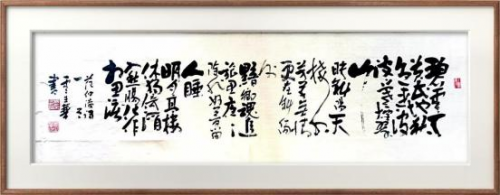 碧雲天
黄葉地秋
色連波
波上寒烟翠
山
映斜陽天
接水
芳草無情
更在斜陽
外
黯鄉魂追
旅思夜夜
除非好夢留
人睡
明月高樓
休獨倚酒
入愁腸化作
相思淚
范仲淹詞
書